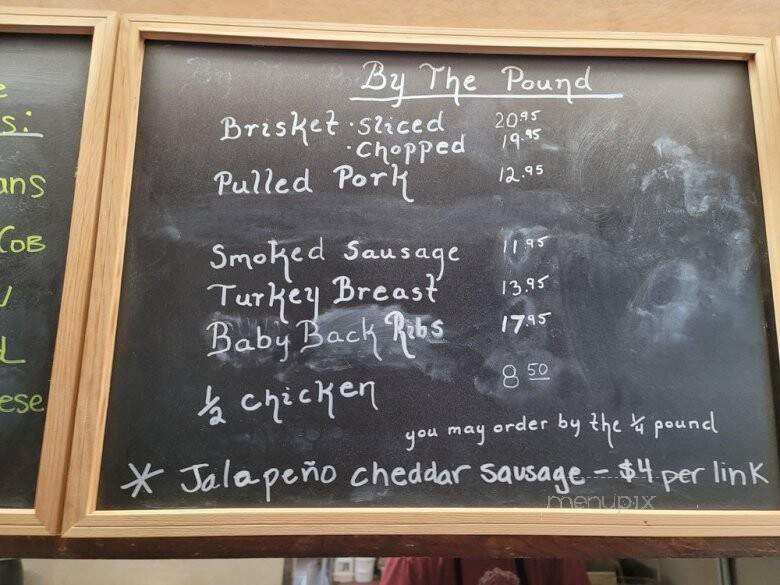 By The Pound
Brisket · sliced 20.95
· chopped 19.95
Pulled Pork 12.95
Smoked Sausage 11.95
Turkey Breast 13.95
Baby Back Ribs 17.95
½ chicken 8 50
you may order by the ¼ pound
* Jalapeño cheddar sausage - $4 per link
menupix
s:
ans
COB
L
ese